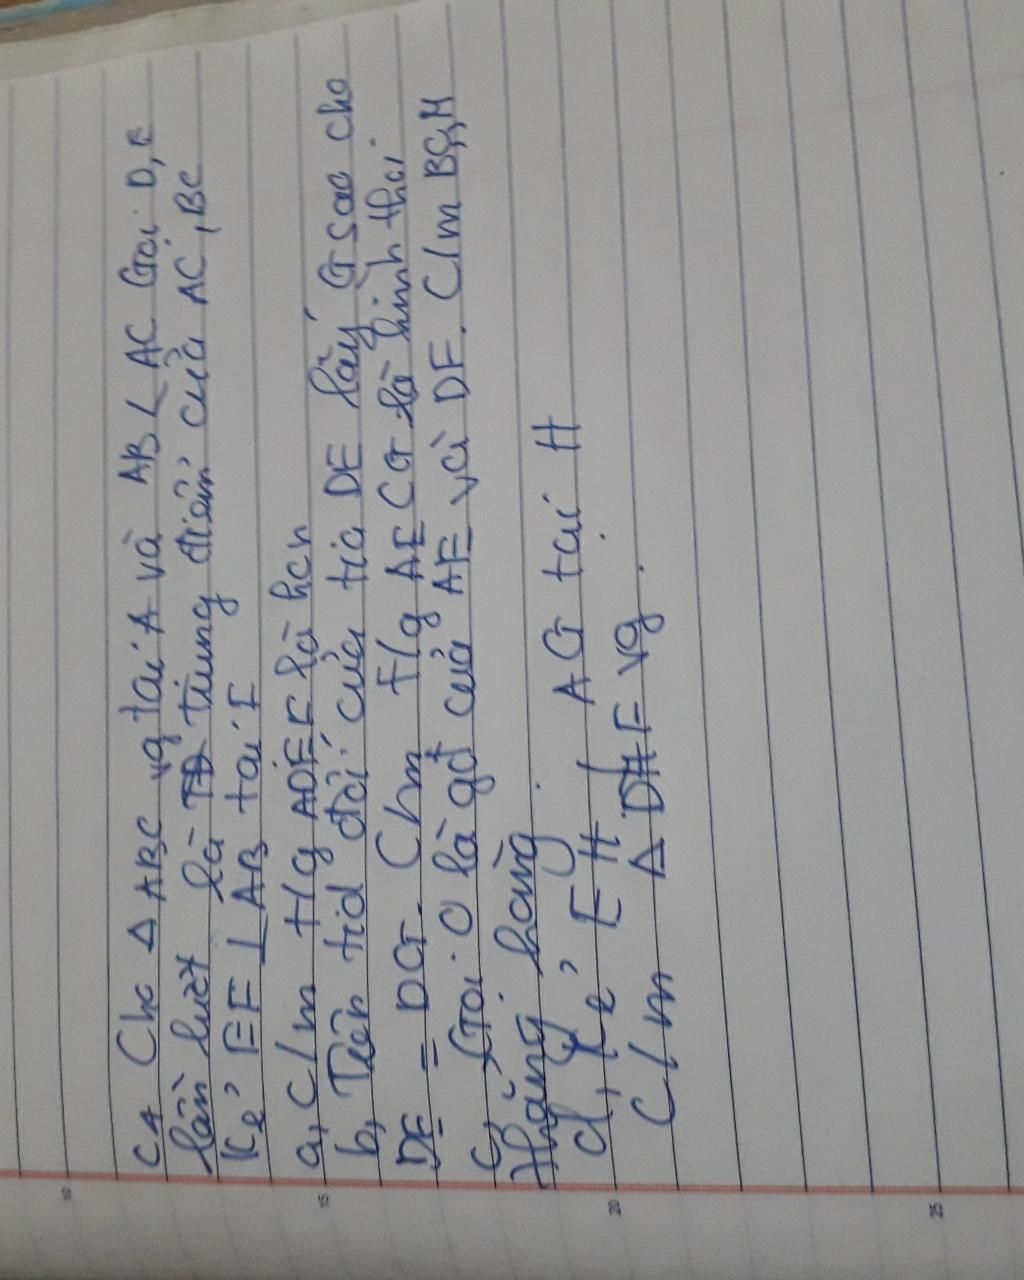 C4 Cho Δ ABC vg tại A và AB < AC Gọi D, E
lần lượt là trung điểm của AC, BC
Kẻ EF ⊥ AB tại F
a, C/m t/g ADEF là hcn
b, Trên tia đối của tia DE lấy G sao cho
DE = DG. C/m t/g AECG là hình thoi.
c, Gọi O là gđ của AE và DF. C/m B,O,G
thẳng hàng.
d, Kẻ EH ⊥ AG tại H
C/m Δ DHF vg.
10
15
20
25